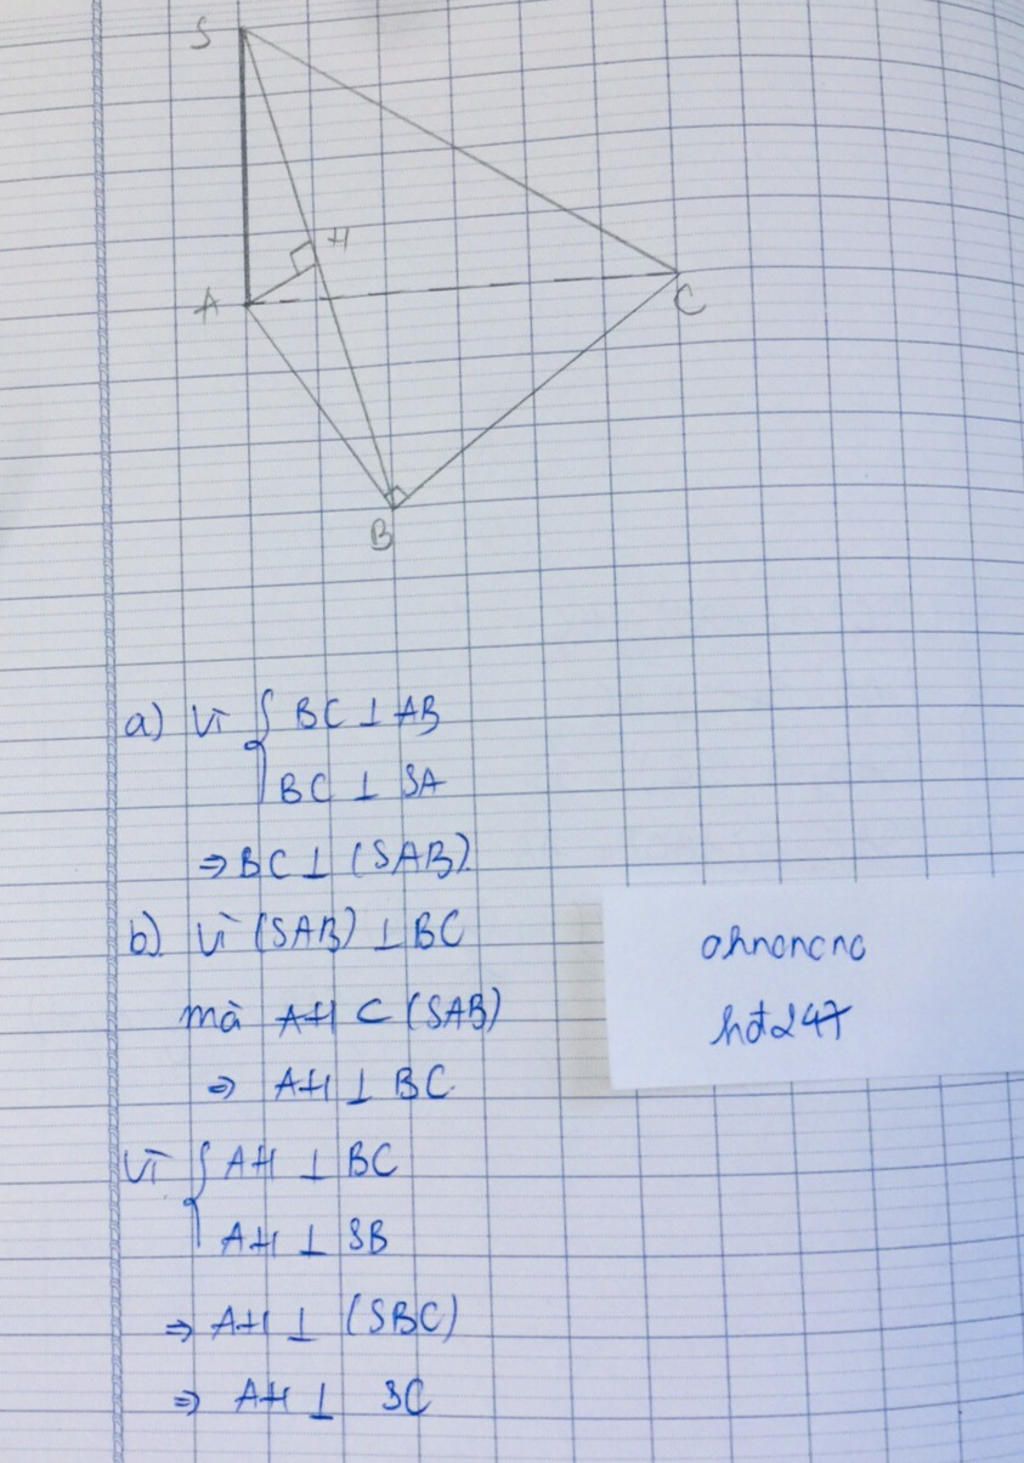 S
H
A
C
B
a) Vì { BC ⊥ AB
BC ⊥ SA
⇒ BC ⊥ (SAB).
b) Vì (SAB) ⊥ BC
mà AH ⊂ (SAB)
⇒ AH ⊥ BC.
Vì { AH ⊥ BC
AH ⊥ SB
⇒ AH ⊥ (SBC)
⇒ AH ⊥ SC
ahncncnc
hđ247